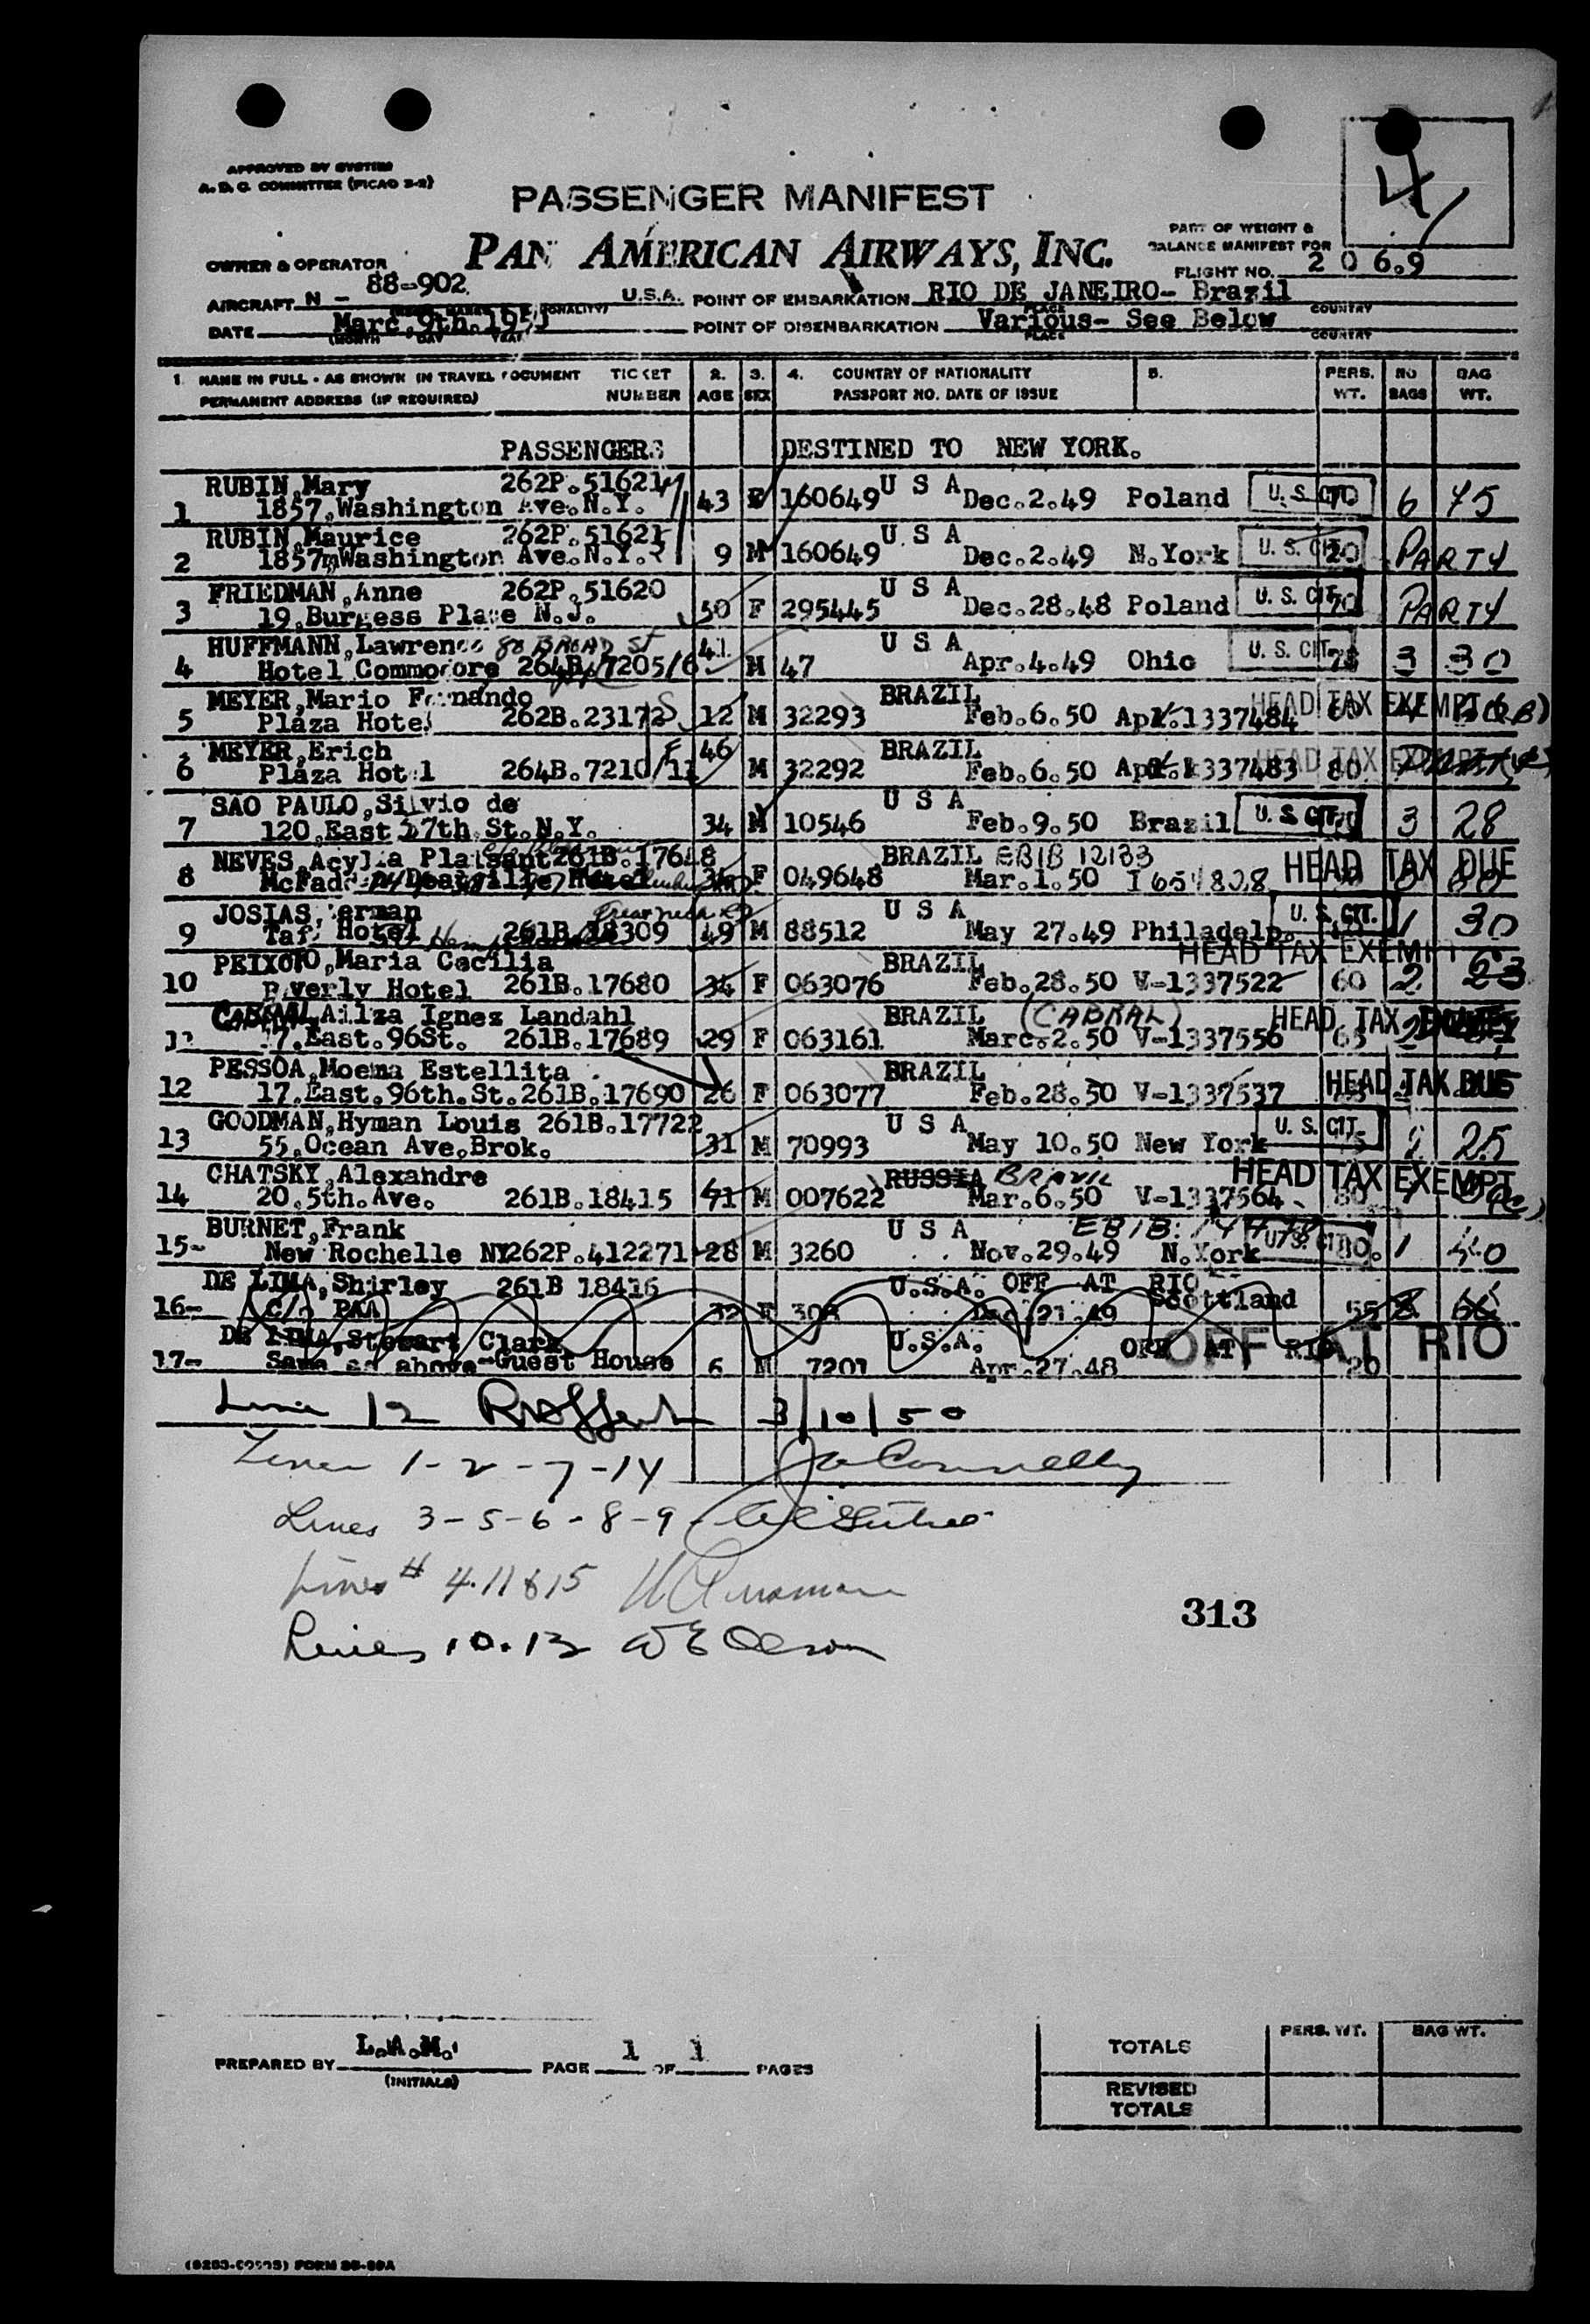 4
APPROVED BY SYSTEM
A. D. C. COMMITTEE (PICAO 2-2)
PASSENGER MANIFEST
PAN AMERICAN AIRWAYS, INC.
PART OF WEIGHT &
BALANCE MANIFEST FOR
FLIGHT NO. 206.9
OWNER & OPERATOR
AIRCRAFT N - 88-902 U.S.A. POINT OF EMBARKATION RIO DE JANEIRO- Brazil
PLACE COUNTRY
DATE Marc.9th.19 POINT OF DISEMBARKATION Various- See Below
(MONTH DAY YEAR PLACE COUNTRY
1. NAME IN FULL - AS SHOWN IN TRAVEL DOCUMENT TICKET 2. 3. 4. COUNTRY OF NATIONALITY 5. PERS. NO BAG
PERMANENT ADDRESS (IF REQUIRED) NUMBER AGE SEX PASSPORT NO. DATE OF ISSUE WT. BAGS WT.
PASSENGERS DESTINED TO NEW YORK.
RUBIN,Mary 262P.51621 U S A
1 1857,Washington Ave.N.Y. 43 F 160649 Dec.2.49 Poland U. S. CIT. 70 6 75
RUBIN,Maurice 262P.51621 U S A
2 1857mWashington Ave.N.Y. 9 M 160649 Dec.2.49 N.York U. S. CIT. 20 PARTY
FRIEDMAN,Anne 262P.51620 U S A
3 19,Burgess Place N.J. 50 F 295445 Dec.28.48 Poland U. S. CIT. 70 PARTY
HUFFMANN,Lawrence 80 BROAD ST 41 U S A
4 Hotel Commodore 264B.7205/6 M 47 Apr.4.49 Ohio U. S. CIT. 3 30
MEYER,Mario Fernando BRAZIL
5 Plaza Hotel 262B.23172 12 M 32293 Feb.6.50 1337484 HEAD TAX EXEMPT
MEYER,Erich 46 BRAZIL
6 Plaza Hotel 264B.7210/11 M 32292 Feb.6.50 1337483 80 HEAD TAX EXEMPT
SAO PAULO,Silvio de U S A
7 120,East 17th.St.N.Y. 34 M 10546 Feb.9.50 Brazil U. S. CIT. 3 28
NEVES,Acylia Plaisant 261B.17648 BRAZIL EB1B 12133
8 McFadden Hotel F 049648 Mar.1.50 I 651828 HEAD TAX DUE
JOSIAS,Herman U S A
9 Taft Hotel 261B.18309 49 M 88512 May 27.49 Philadelp. U. S. CIT. 1 30
PEIXOTO,Maria Cecilia BRAZIL HEAD TAX EXEMPT
10 Beverly Hotel 261B.17680 34 F 063076 Feb.28.50 V-1337522 60 2 63
CABRAL,Ailza Ignez Landahl BRAZIL (CABRAL)
11 17.East.96St. 261B.17689 29 F 063161 Marc.2.50 V-1337556 65 HEAD TAX
PESSOA,Moema Estellita BRAZIL
12 17.East.96th.St.261B.17690 26 F 063077 Feb.28.50 V-1337537 HEAD TAX DUE
GOODMAN,Hyman Louis 261B.17722 U S A
13 55,Ocean Ave.Brok. 31 M 70993 May 10.50 New York U. S. CIT. 2 25
CHATSKY,Alexandre RUSSIA BRAZIL
14 20.5th.Ave. 261B.18415 71 M 007622 Mar.6.50 V-1337564 80 HEAD TAX EXEMPT
BURNET,Frank U S A
15- New Rochelle NY262P.412271 28 M 3260 Nov.29.49 N.York U. S. CIT. 1 40
DE LIMA,Shirley 261B 18416 U.S.A. OFF AT RIO
16- C/o PAA 32 F 308 Dec.21.49 Scottland 55
DE LIMA,Stewart Clark U.S.A.
17- Same as above-Guest House 6 M 7201 Apr.27.48 OFF AT RIO 20 OFF AT RIO
Line 12 3/10/50
Lines 1-2-7-14 Connelly
Lines 3-5-6-8-9
Lines # 4.11 & 15
Lines 10.13 W E Olson
313
PREPARED BY L.A.M. PAGE 1 OF 1 PAGES
(INITIALS)
PERS. WT. BAG WT.
TOTALS
REVISED
TOTALS
FORM